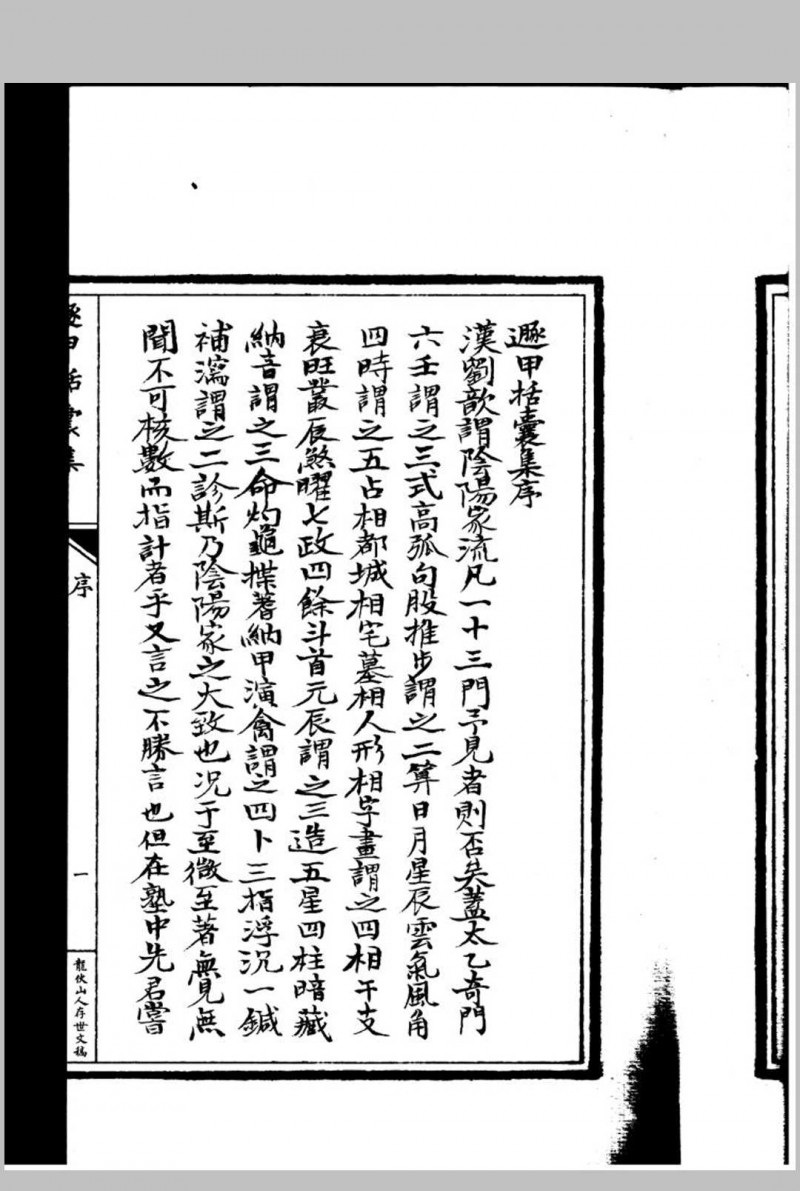 遯甲括囊集序
漢劉歆謂陰陽家流凡一十三門予見者則否矣蓋太乙奇門
六壬謂之三式高弧句股推步謂之二筭日月星辰雲氣風角
四時謂之五占相都城相宅墓相人形相字畫謂之四相干支
衰旺叢辰煞曜七政四餘斗首元辰謂之三造五星四柱暗藏
納音謂之三命灼龜揲蓍納甲演禽謂之四卜三指浮沉一鍼
補瀉謂之二診斯乃陰陽家之大致也况于至微至著無見無
聞不可核數而指計者乎又言之不勝言也但在塾中先君嘗
遯甲括囊集
序
一
龍伏山人存世文稿